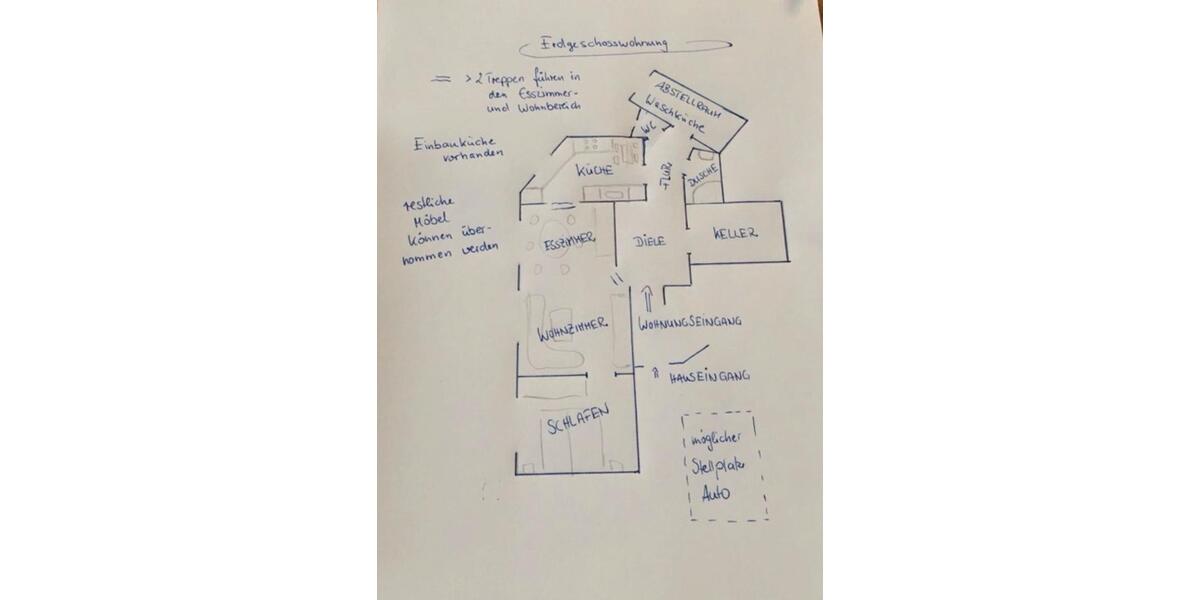 Erdgeschosswohnung
= > 2 Treppen führen in
den Esszimmer-
und Wohnbereich
ABSTELLRAUM
Waschküche
WC
Einbauküche
vorhanden
KÜCHE
FLUR
DUSCHE
restliche
Möbel
können über-
nommen werden
ESSZIMMER
DIELE
KELLER
WOHNZIMMER
WOHNUNGSEINGANG
HAUSEINGANG
SCHLAFEN
möglicher
Stellplatz
Auto